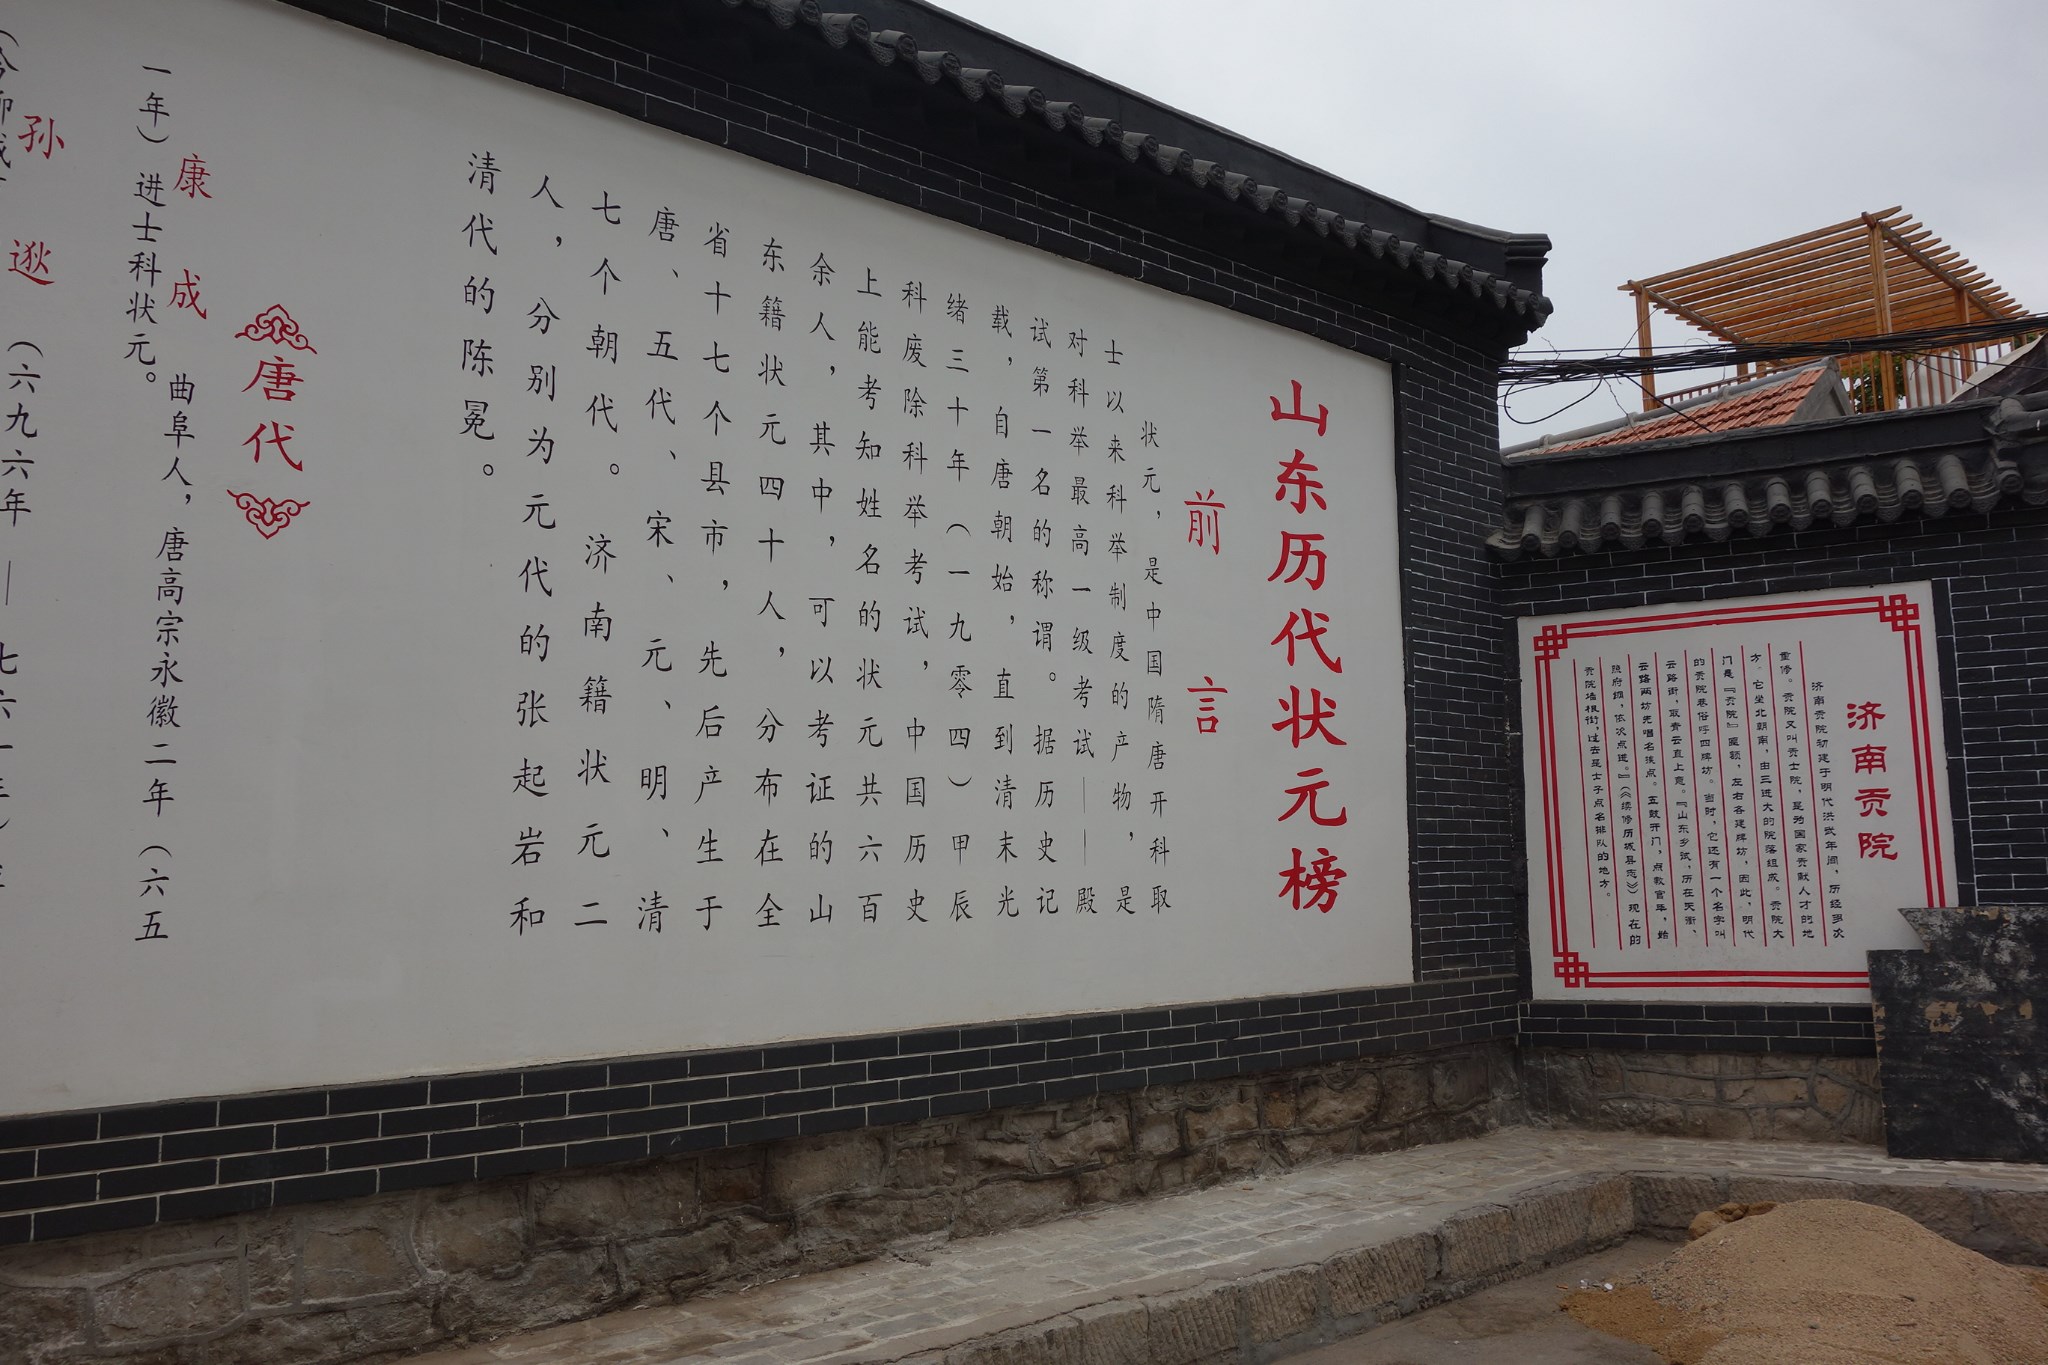 济南贡院
济南贡院初建于明代洪武年间，历经多次
重修。贡院又叫贡士院，是为国家贡献人才的地
方。它坐北朝南，由三进大的院落组成。贡院大
门是『贡院』匾额，左右各建牌坊，因此，明代
的贡院巷俗呼四牌坊。当时，它还有一个名字叫
云路街，取青云直上意。『山东乡试，历在天衢，
云路两坊先唱名浅点。五鼓开门，点教官毕，始
照府牌，依次点进。』（《续修历城县志》）现在的
贡院墙根街，过去是士子点名排队的地方。
山东历代状元榜
前言
状元，是中国隋唐开科取
士以来科举制度的产物，是
对科举最高一级考试——殿
试第一名的称谓。据历史记
载，自唐朝始，直到清末光
绪三十年（一九零四）甲辰
科废除科举考试，中国历史
上能考知姓名的状元共六百
余人，其中，可以考证的山
东籍状元四十人，分布在全
省十七个县市，先后产生于
唐、五代、宋、元、明、清
七个朝代。济南籍状元二
人，分别为元代的张起岩和
清代的陈冕。
唐代
康成 曲阜人，唐高宗永徽二年（六五
一年）进士科状元。
孙逖 （六九六年—七六一年）